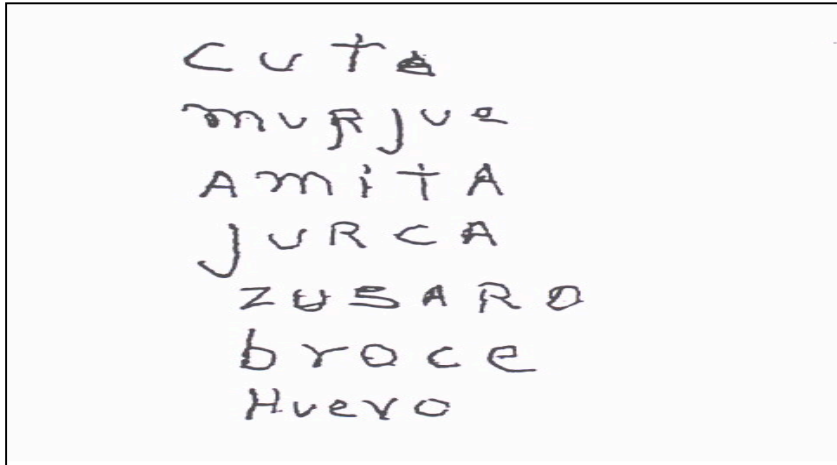 CUTA
MURJUE
AMiTA
JURCA
ZUSARO
broce
Huevo